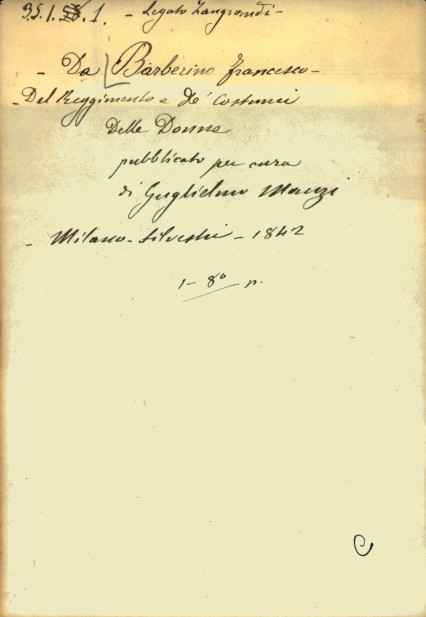 35.1.1. - Legato Zangrandi -
- Da Barberino Francesco -
- Del Reggimento e de' Costumi
Delle Donne
pubblicato per cura
di Guglielmo Manzi
- Milano - Silvestri - 1842
1 - 8° n.
C